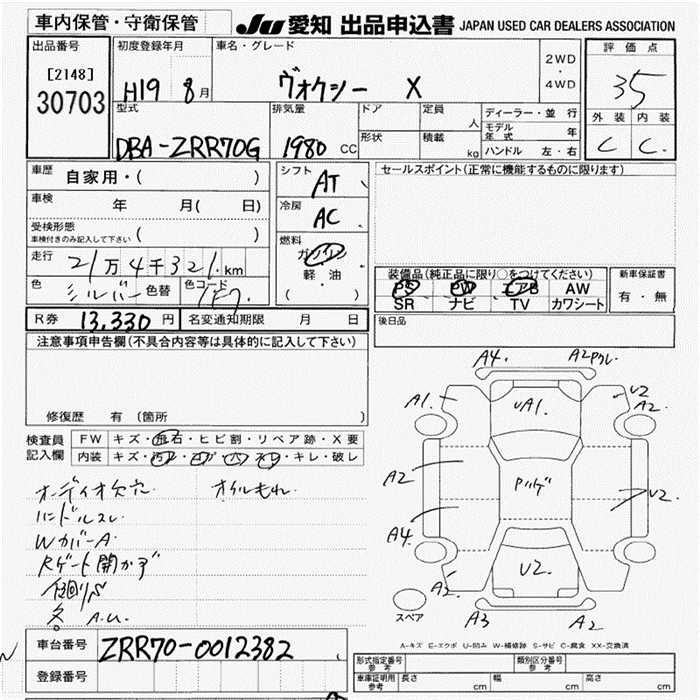 車内保管・守衛保管
JU 愛知 出品申込書 JAPAN USED CAR DEALERS ASSOCIATION
出品番号
[2148]
30703
初度登録年月
H19 8月
車名・グレード
ヴォクシー X
2WD
・
4WD
評価点
3.5
外装 内装
C C.
型式
DBA-ZRR70G
排気量
1980 CC
ドア
形状
定員
人
積載
kg
ディーラー・並行
モデル年式 年
ハンドル 左・右
車歴 自家用・( )
車検 年 月( 日)
受検形態
車検付きのみ記入して下さい ( )
走行 21万4千321km
色 シルバー 色替 色コード 1F7
R券 13,330円 名変通知期限 月 日
シフト AT
冷房 AC
燃料
ガソリン
軽・油
( )
セールスポイント(正常に機能するものに限ります)
装備品(純正品に限り○をつけてください)
PS PW エアB AW
SR ナビ TV カワシート
新車保証書
有・無
後日品
注意事項申告欄(不具合内容等は具体的に記入して下さい)
修復歴 有 (箇所 )
検査員
記入欄
FW キズ・飛石・ヒビ割・リペア跡・X要
内装 キズ・汚レ・コゲ・穴・スレ・キレ・破レ
オーディオ欠穴 オイルもれ
ハンドルスレ
Wカバー A
Rゲート開かず
A.U.
A4. A2
A1. UA1. U2 A2.
A2
Pハゲ
U2.
A4.
U2.
A2. A3 A2
スペア
A-キズ E-エクボ U-凹み W-補修跡 S-サビ C-腐食 XX-交換済
車台番号 ZRR70-0012382
登録番号
形式指定番号 参考
類別区分番号 参考
車庫証明用 参考 長さ cm 幅 cm 高さ cm